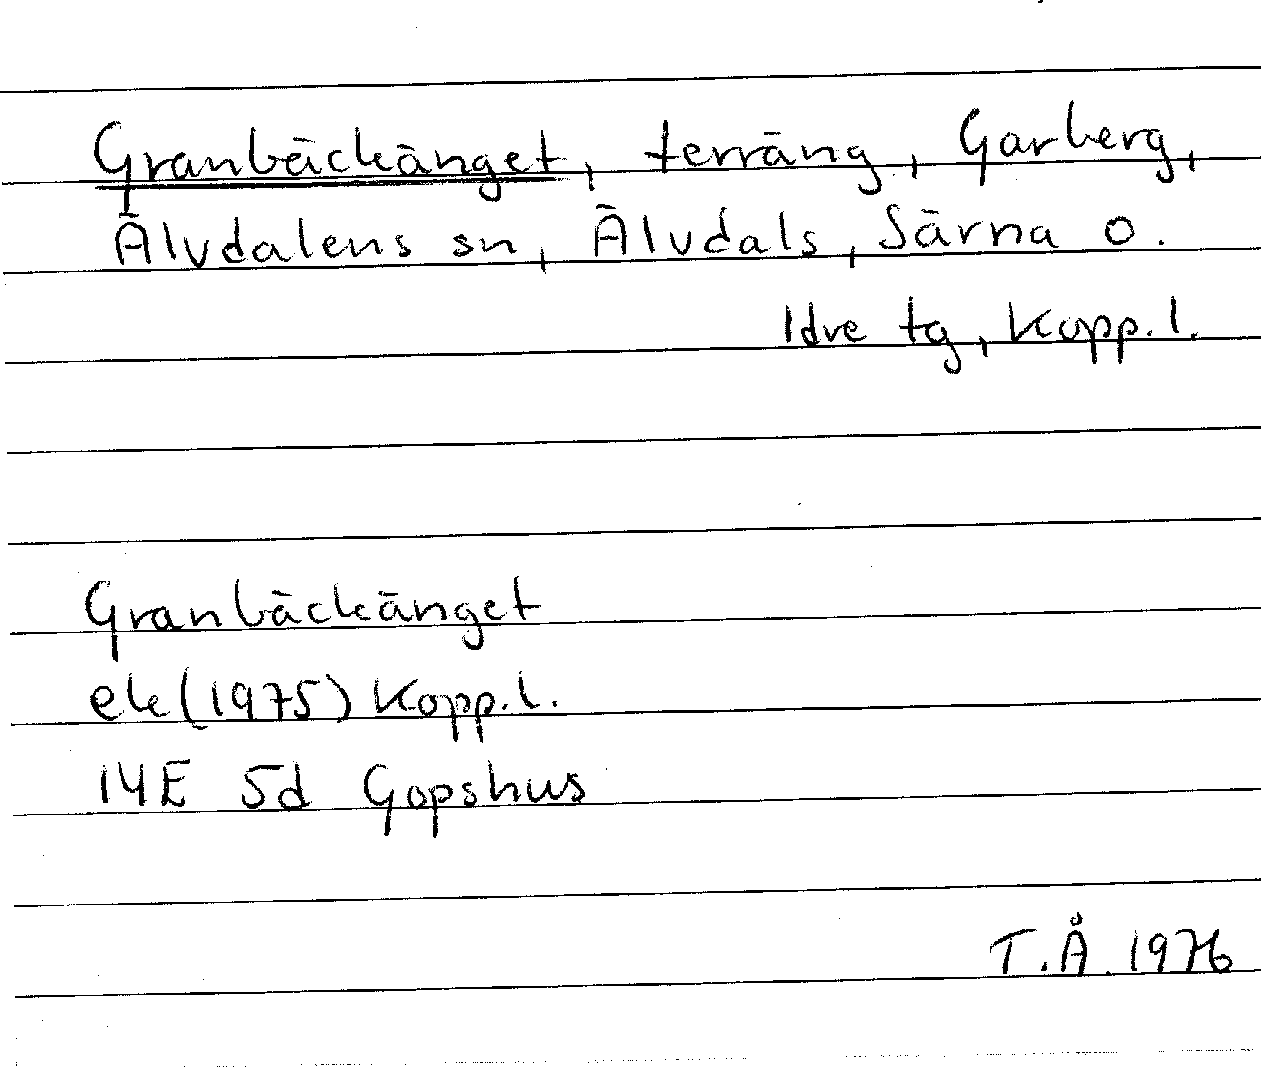 Granbäckänget, terräng, Garberg,
Älvdalens sn, Älvdals, Särna o.
Idre tg, Kopp. l.
Granbäckänget
ek (1975) Kopp. l.
14E 5d Gopshus
T.Å. 1976